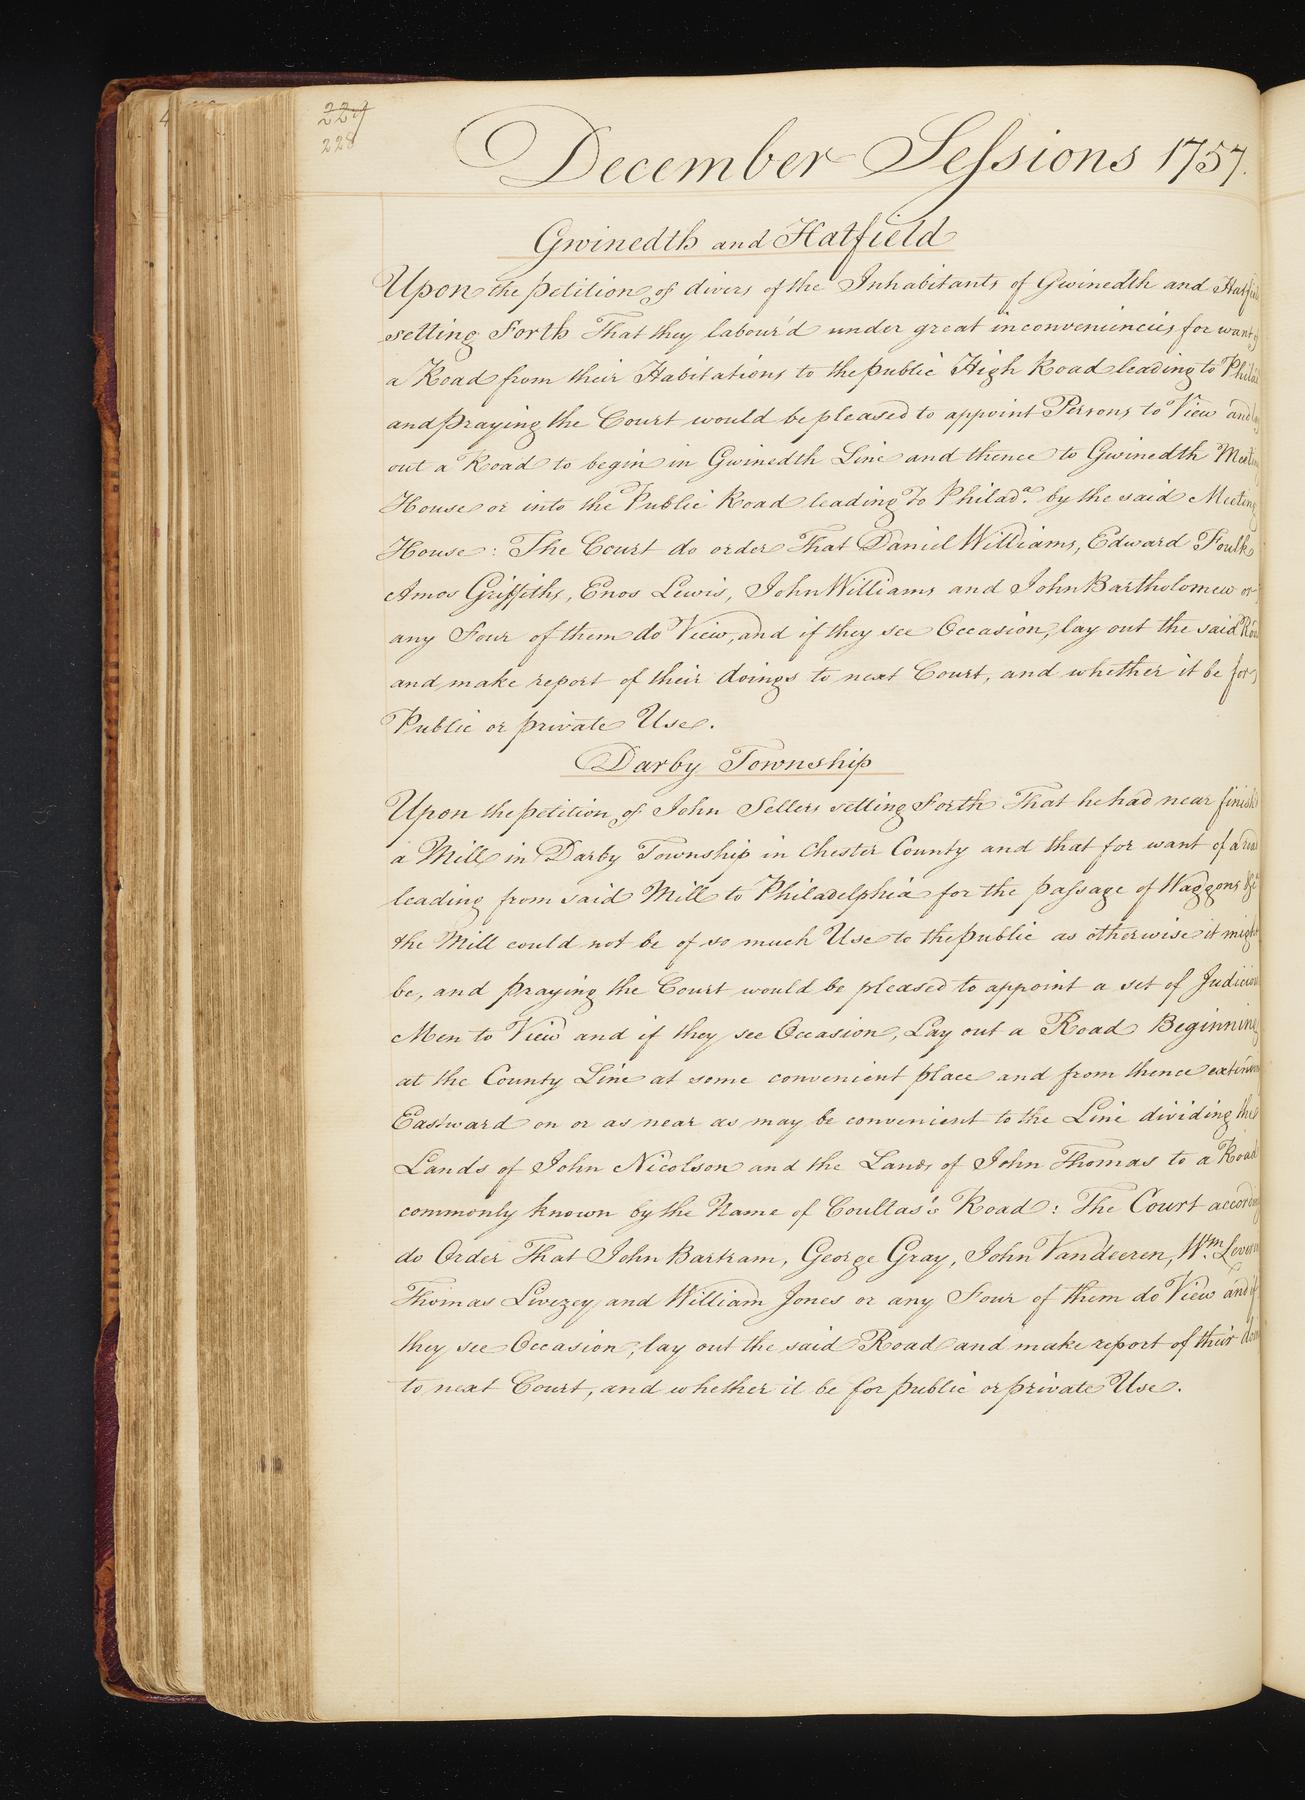 224
228
December Sessions 1757.
Gwinedth and Hatfield
Upon the petition of divers of the Inhabitants of Gwinedth and
setting Forth That they labour'd under great inconveniencies for want
a Road from their Habitations to the public High Road leading to
and praying the Court would be pleased to appoint Persons to View and
out a Road to begin in Gwinedth Line and thence to Gwinedth
House or into the Public Road leading To Philada. by the said Meeting
House: The Court do order That Daniel Williams, Edward Foulk
Amos Griffiths, Enos Lewis, John Williams and John Bartholomew or
any Four of them do View, and if they see Occasion, lay out the said
and make report of their doings to next Court, and whether it be for
Public or private Use.
Darby Township
Upon the petition of John Sellers setting Forth That he had near
a Mill in Darby Township in Chester County and that for want of a
leading from said Mill to Philadelphia for the passage of Waggons &c
the Mill could not be of so much Use to the public as otherwise it
be, and praying the Court would be pleased to appoint a set of
Men to View and if they see Occasion, Lay out a Road Beginning
at the County Line at some convenient place and from thence
Eastward on or as near as may be convenient to the Line dividing the
Lands of John Nicolson and the Lands of John Thomas to a Road
commonly known by the Name of Coultas's Road: The Court
do Order That John Bartram, George Gray, John Vandeeren, Wm.
Thomas Livezey and William Jones or any Four of them do View and if
they see Occasion, lay out the said Road and make report of their
to next Court, and whether it be for public or private Use.